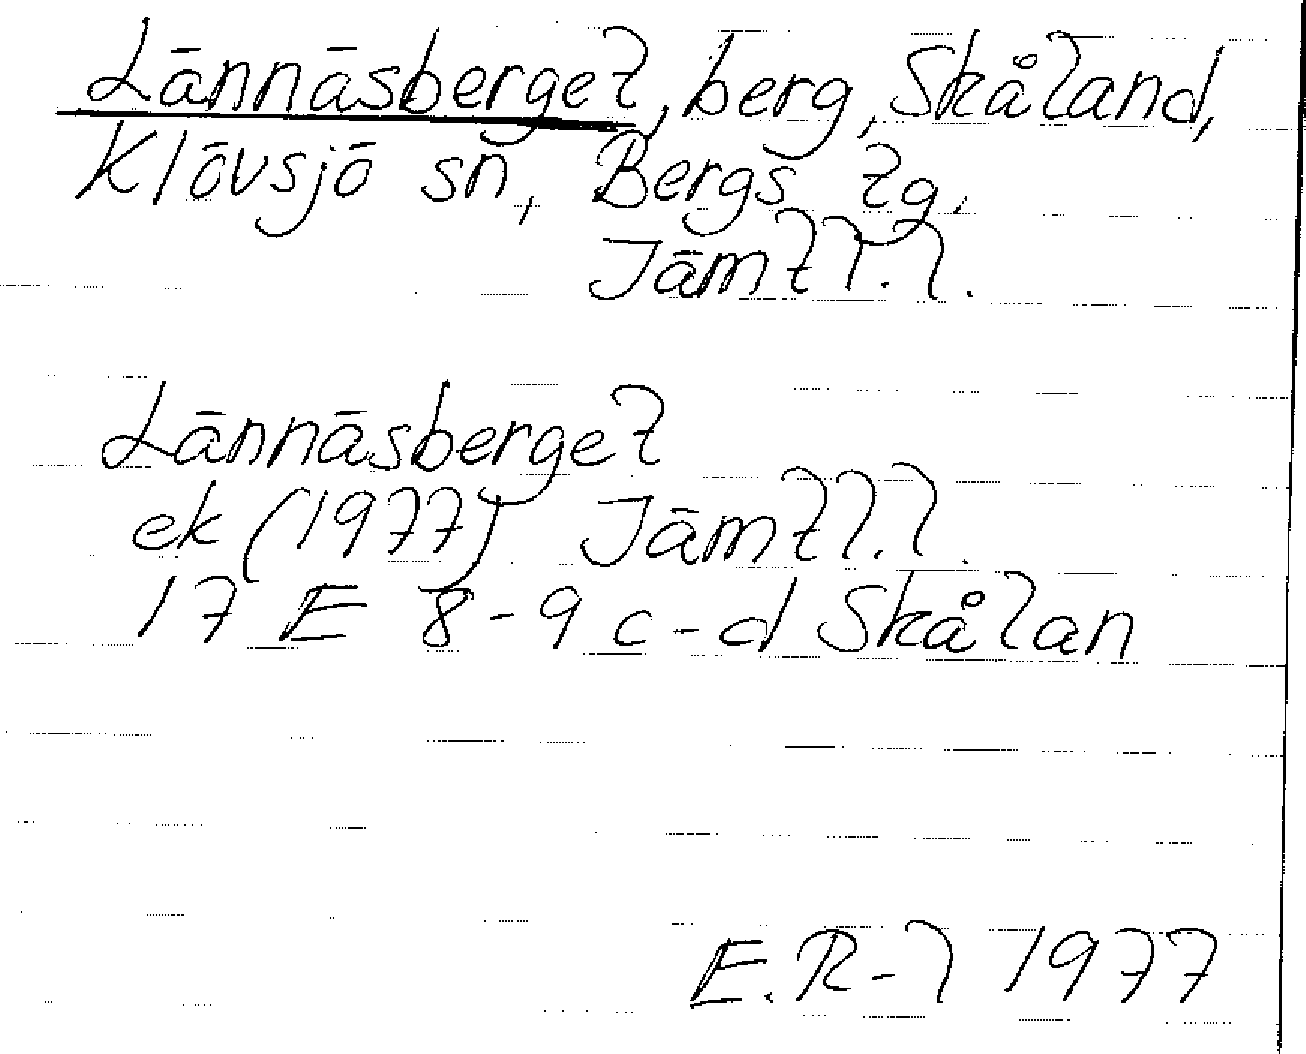 Lännäsberget, berg, Skåland,
Klövsjö sn, Bergs tg,
Jämtl. l.
Lännäsberget
ek (1977) Jämtl. l.
17 E 8-9 c-d Skålan
E. R-l 1977